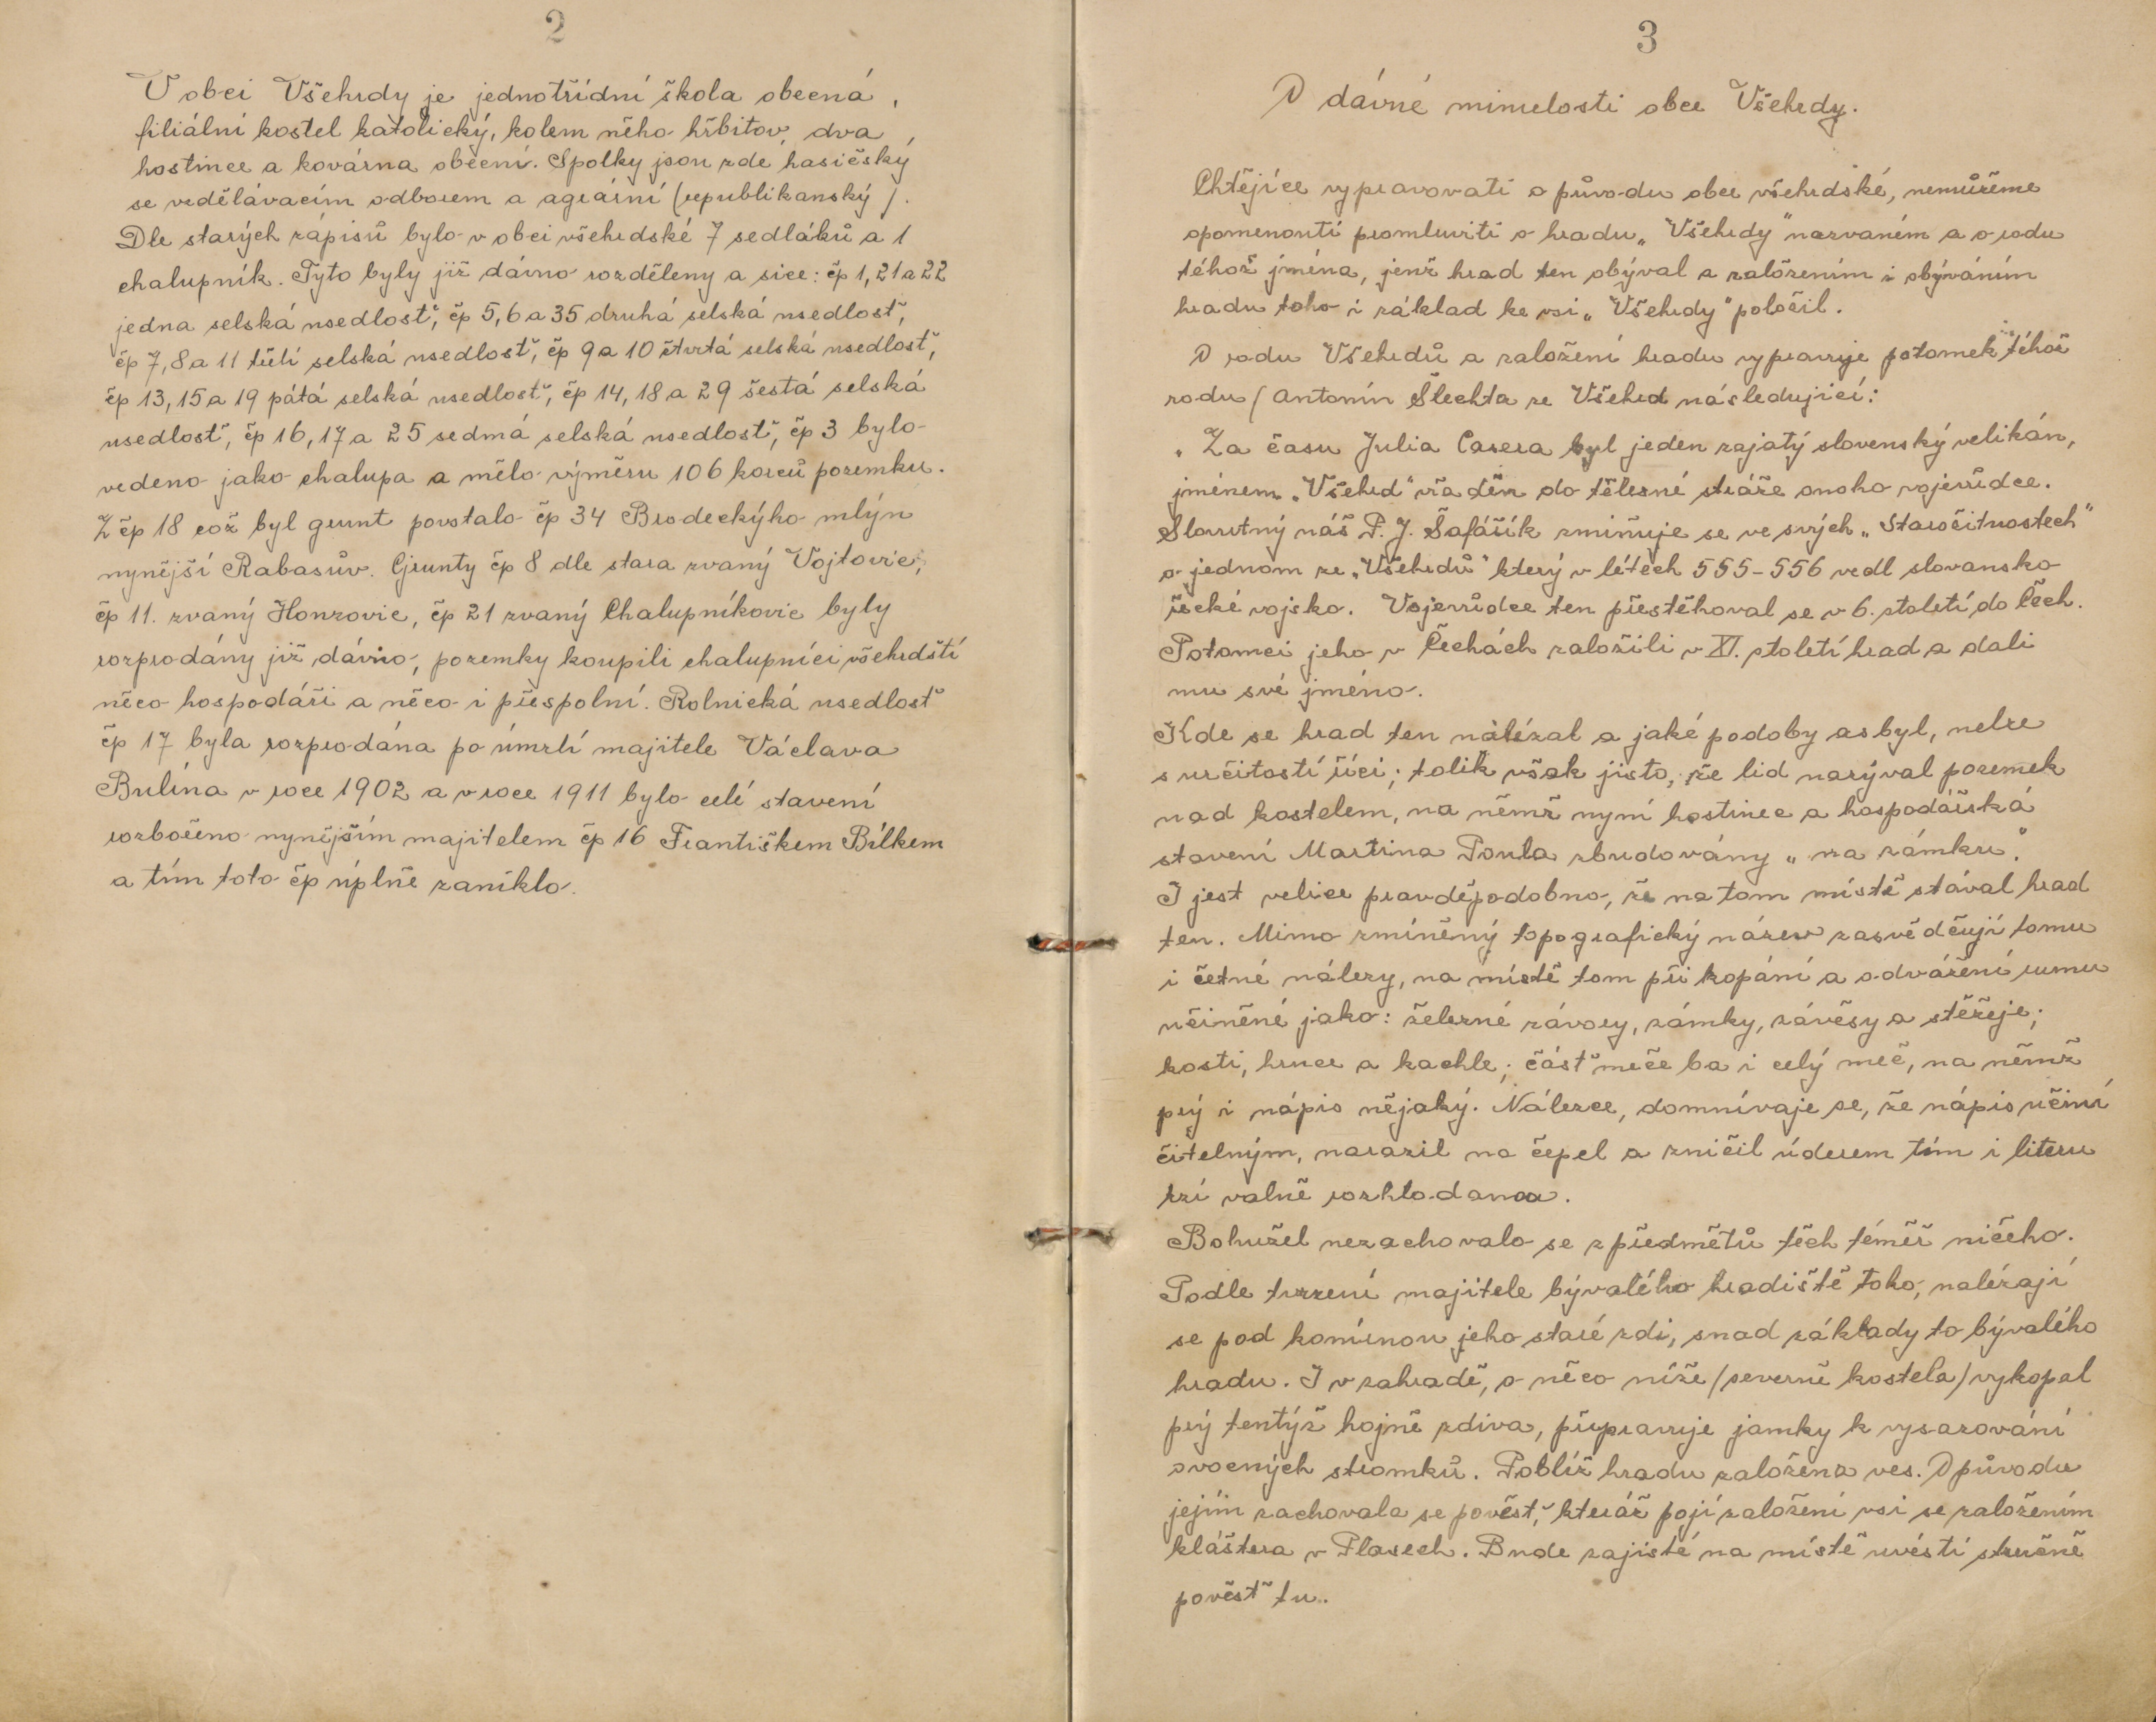 2
V obci Všehrdy je jednotřídní škola obecná,
filiální kostel katolický, kolem něho hřbitov, dva
hostince a kovárna obecní. Spolky jsou zde, hasičský
se vzdělávacím odborem a agrární (republikanský).
Dle starých zápisů bylo v obci všehrdské 7 sedláků a 1
chalupník. Tyto byly již dávno rozděleny a sice: čp 1, 21 a 22
jedna selská usedlosť, čp 5, 6 a 35 druhá selská usedlosť,
čp 7, 8 a 11 třetí selská usedlosť, čp 9 a 10 čtvrtá selská usedlosť,
čp 13, 15 a 19 pátá selská usedlosť, čp 14, 18 a 29 šestá selská
usedlosť, čp 16, 17 a 25 sedmá selská usedlosť, čp 3 bylo
vedeno jako chalupa a mělo výměru 106 korců pozemku.
Z čp 18 což byl grunt povstalo čp 34 Brodeckýho mlýn
nynější Rabasův. Grunty čp 8 dle stara zvaný Vojtovic,
čp 11. zvaný Honzovic, čp 21 zvaný Chalupníkovic byly
rozprodány již dávno, pozemky koupili chalupníci všehrdští
něco hospodáři a něco i přespolní. Rolnická usedlosť
čp 17 byla rozprodána po úmrtí majitele Václava
Bulína v roce 1902 a v roce 1911 bylo celé stavení
rozbořeno nynějším majitelem čp 16 Františkem Bílkem
a tím toto čp úplně zaniklo.
3
O dávné minulosti obce Všehrdy.
Chtějíce vypravovati o původu obce všehrdské, nemůžeme
opomenouti promluviti o hradu „Všehrdy" nazvaném a o rodu
téhož jména, jenž hrad ten obýval a založením i obýváním
hradu toho i základ ke vsi „Všehrdy" položil.
O rodu Všehrdů a založení hradu vypravuje potomek téhož
rodu (Antonín Šlechta ze Všehrd následující:
„Za času Julia Casera byl jeden zajatý slovenský velikán,
jménem „Všehrd" vřaděn do tělesné stráže onoho vojevůdce.
Slovutný náš P. J. Šafářík zmiňuje se ve svých „Starožitnostech"
o jednom ze „Všehrdů" který v létech 555-556 vedl slovansko
řecké vojsko. Vojevůdce ten přestěhoval se v 6. století do Čech.
Potomci jeho v Čechách založili v XI. století hrad a dali
mu své jméno.
Kde se hrad ten nalézal a jaké podoby as byl, nelze
s určitostí říci; tolik však jisto, že lid nazýval pozemek
nad kostelem, na němž nyní hostinec a hospodářská
stavení Martina Poula zbudovány „na zámku."
I jest velice pravděpodobno, že na tom místě stával hrad
ten. Mimo zmíněný topografický název zasvědčují tomu
i četné nálezy, na místě tom při kopání a odvážení rumu
učiněné jako: železné závory, zámky, závěsy a stěžeje;
kosti, hrnce a kachle; čásť meče ba i celý meč, na němž
prý i nápis nějaký. Nálezce, domnívaje se, že nápis učiní
čitelným, narazil na čepel a zničil úderem tím i literu
rzí valně rozhlodanou.
Bohužel nezachovalo se z předmětů těch téměř ničeho.
Podle tvrzení majitele bývalého hradiště toho, nalézají
se pod komínou jeho staré zdi, snad základy to bývalého
hradu. I v zahradě, o něco níže (severně kostela) vykopal
prý tentýž hojně zdiva, připravuje jamky k vysazování
ovocných stromků. Poblíž hradu založena ves. O původu
jejím zachovala se pověsť, kteráž pojí založení vsi se založením
kláštera v Plasech. Bude zajisté na místě uvésti stručně
pověsť tu.